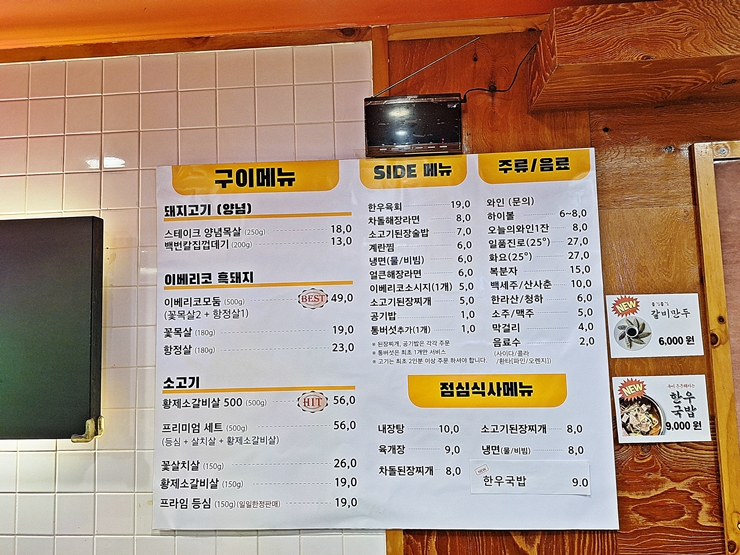 구이메뉴
돼지고기 (양념)
스테이크 양념목살 (250g) 18,0
백번칼집껍데기 (200g) 13,0
이베리코 흑돼지
이베리코모둠 (500g) BEST 49,0
(꽃목살2 + 항정살1)
꽃목살 (180g) 19,0
항정살 (180g) 23,0
소고기
황제소갈비살 500 (500g) HIT 56,0
프리미엄 세트 (500g) 56,0
(등심 + 살치살 + 황제소갈비살)
꽃살치살 (150g) 26,0
황제소갈비살 (150g) 19,0
프라임 등심 (150g) (일일한정판매) 19,0
SIDE 메뉴
한우육회 19,0
차돌해장라면 8,0
소고기된장술밥 7,0
계란찜 6,0
냉면(물/비빔) 6,0
얼큰해장라면 6,0
이베리코소시지(1개) 5,0
소고기된장찌개 5,0
공기밥 1,0
통버섯추가(1개) 1,0
※ 된장찌개, 공기밥은 각각 주문
※ 통버섯은 최초 1개만 서비스
※ 고기는 최초 2인분 이상 주문 하셔야 합니다.
주류/음료
와인 (문의)
하이볼 6~8,0
오늘의와인1잔 8,0
일품진로(25°) 27,0
화요(25°) 27,0
복분자 15,0
백세주/산사춘 10,0
한라산/청하 6,0
소주/맥주 5,0
막걸리 4,0
음료수 2,0
(사이다/콜라
/환타[파인/오렌지])
점심식사메뉴
내장탕 10,0
육개장 9,0
차돌된장찌개 8,0
소고기된장찌개 8,0
냉면(물/비빔) 8,0
NEW 한우국밥 9.0
NEW
갈비만두
6.000 원
NEW
한우
국밥
9.000 원